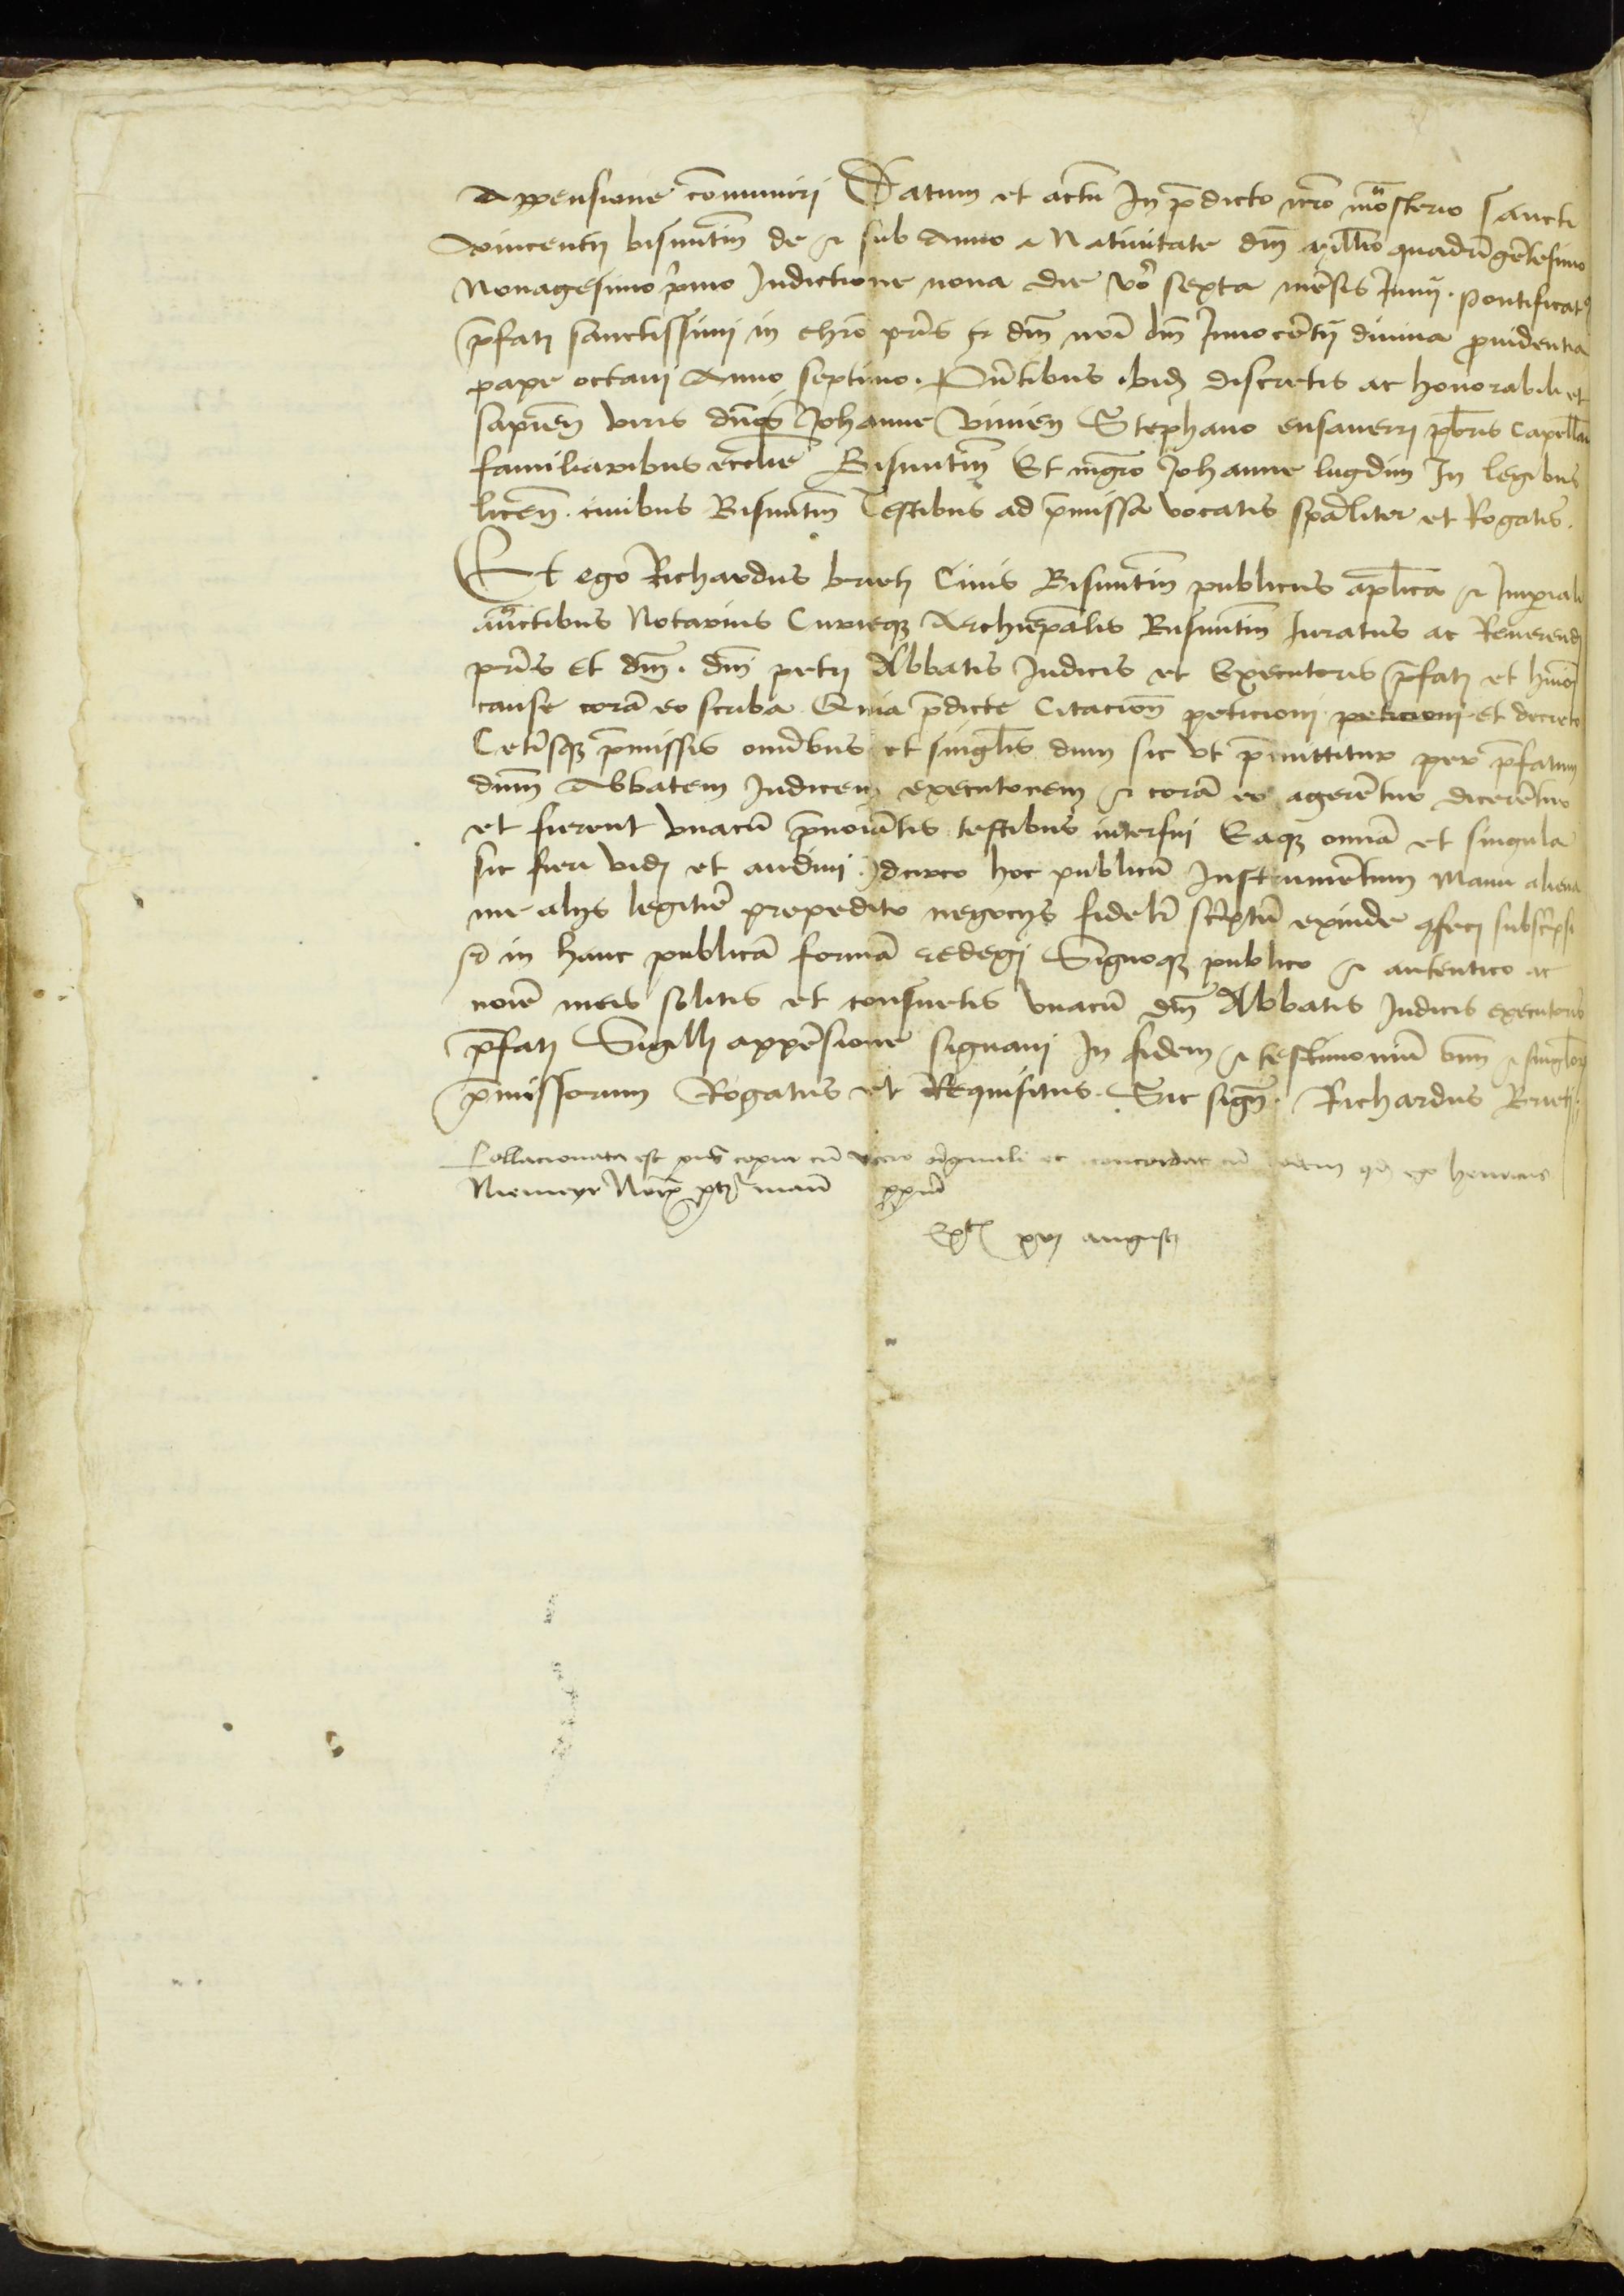 Appensione co̅muniri Datum et actu̅ In p̅dicto nr̅o mo̅asterio Sancti
vincentij bisuntin̅ de et sub Anno a Natiuitate dn̅i millio̅ quadringe̅tesimo
Nonagesimo p̓mo Indictione nona die vo̓ sexta me̅sis Iunij . pontificatꝰ
p̅fati sanctissimi in chr̅o pr̅is et dn̅i nr̅i dn̅i Innoce̅tij diuina ꝓuidentia
pape octaui Anno septimo . Pn̅tibus ibid̅ discretis ac honorabili et
sapien̅ viris dn̅is Johanne vimen̅ Stephano ensanerri pb̅ris Capell̅
familiaribus eccl̅ie Bisuntin̅ Et mgr̅o Johanne lugdun̅ In legibus
licen̅ . ciuibus Bisuntin̅ Testibus ad p̅missa vocatis sp̅aliter et Rogatis .
Et ego Richardus brieti Ciuis Bisuntin̅ publicus ap̅lica et Imp̅iali
au̅ctibus Notarius Curieqꝫ Archiep̅alis Bisuntin̅ Iuratus ac Reuerendi
pr̅is Et dn̅i . dn̅i petri Abbatis Iudicis et Executoris p̅fati et hmo̅i
cause cora̅ eo scriba Quia p̅dicte Citacion̅ peticioni peticioni et decreto
Cet̓isqꝫ p̅missis omnibus et singl̅is dum sic vt p̅mittitur per p̅fatum
dn̅m Abbatem Iudicem executorem et cora̅ eo agere̅tur dicere̅tur
et fierent vnacu̅ p̅noia̅tis testibus interfui Eaqꝫ omnia et singula
sic fieri vidi et audiui Idcirco hoc publicu̅ Instrume̅tum Manu aliena
me alijs legitie̅ prepedito negocijs fidelit̓ sc̓ptu̅ exinde ꝯfeci subsc̓psi
et in hanc publica̅ forma̅ redegi Signoqꝫ publico et autentico ac
noi̅e meis solitis et consuetis vnacu̅ dn̅i Abbatis Iudicis executoris
p̅fati Sigilli appe̅sione signaui In fidem et testimoniu̅ om̅ et singlo̅ꝝ
p̅missorum Rogatus et Requisitus . Sic sign̅ . Richardus Brieti .
Collacionata est pn̅s copia cu̅ vero originali et concordat cu̅ eodem qd̅ ego henricus
Niemeyr Not̅ ptor̅ manu ꝓpria
xvj augusti